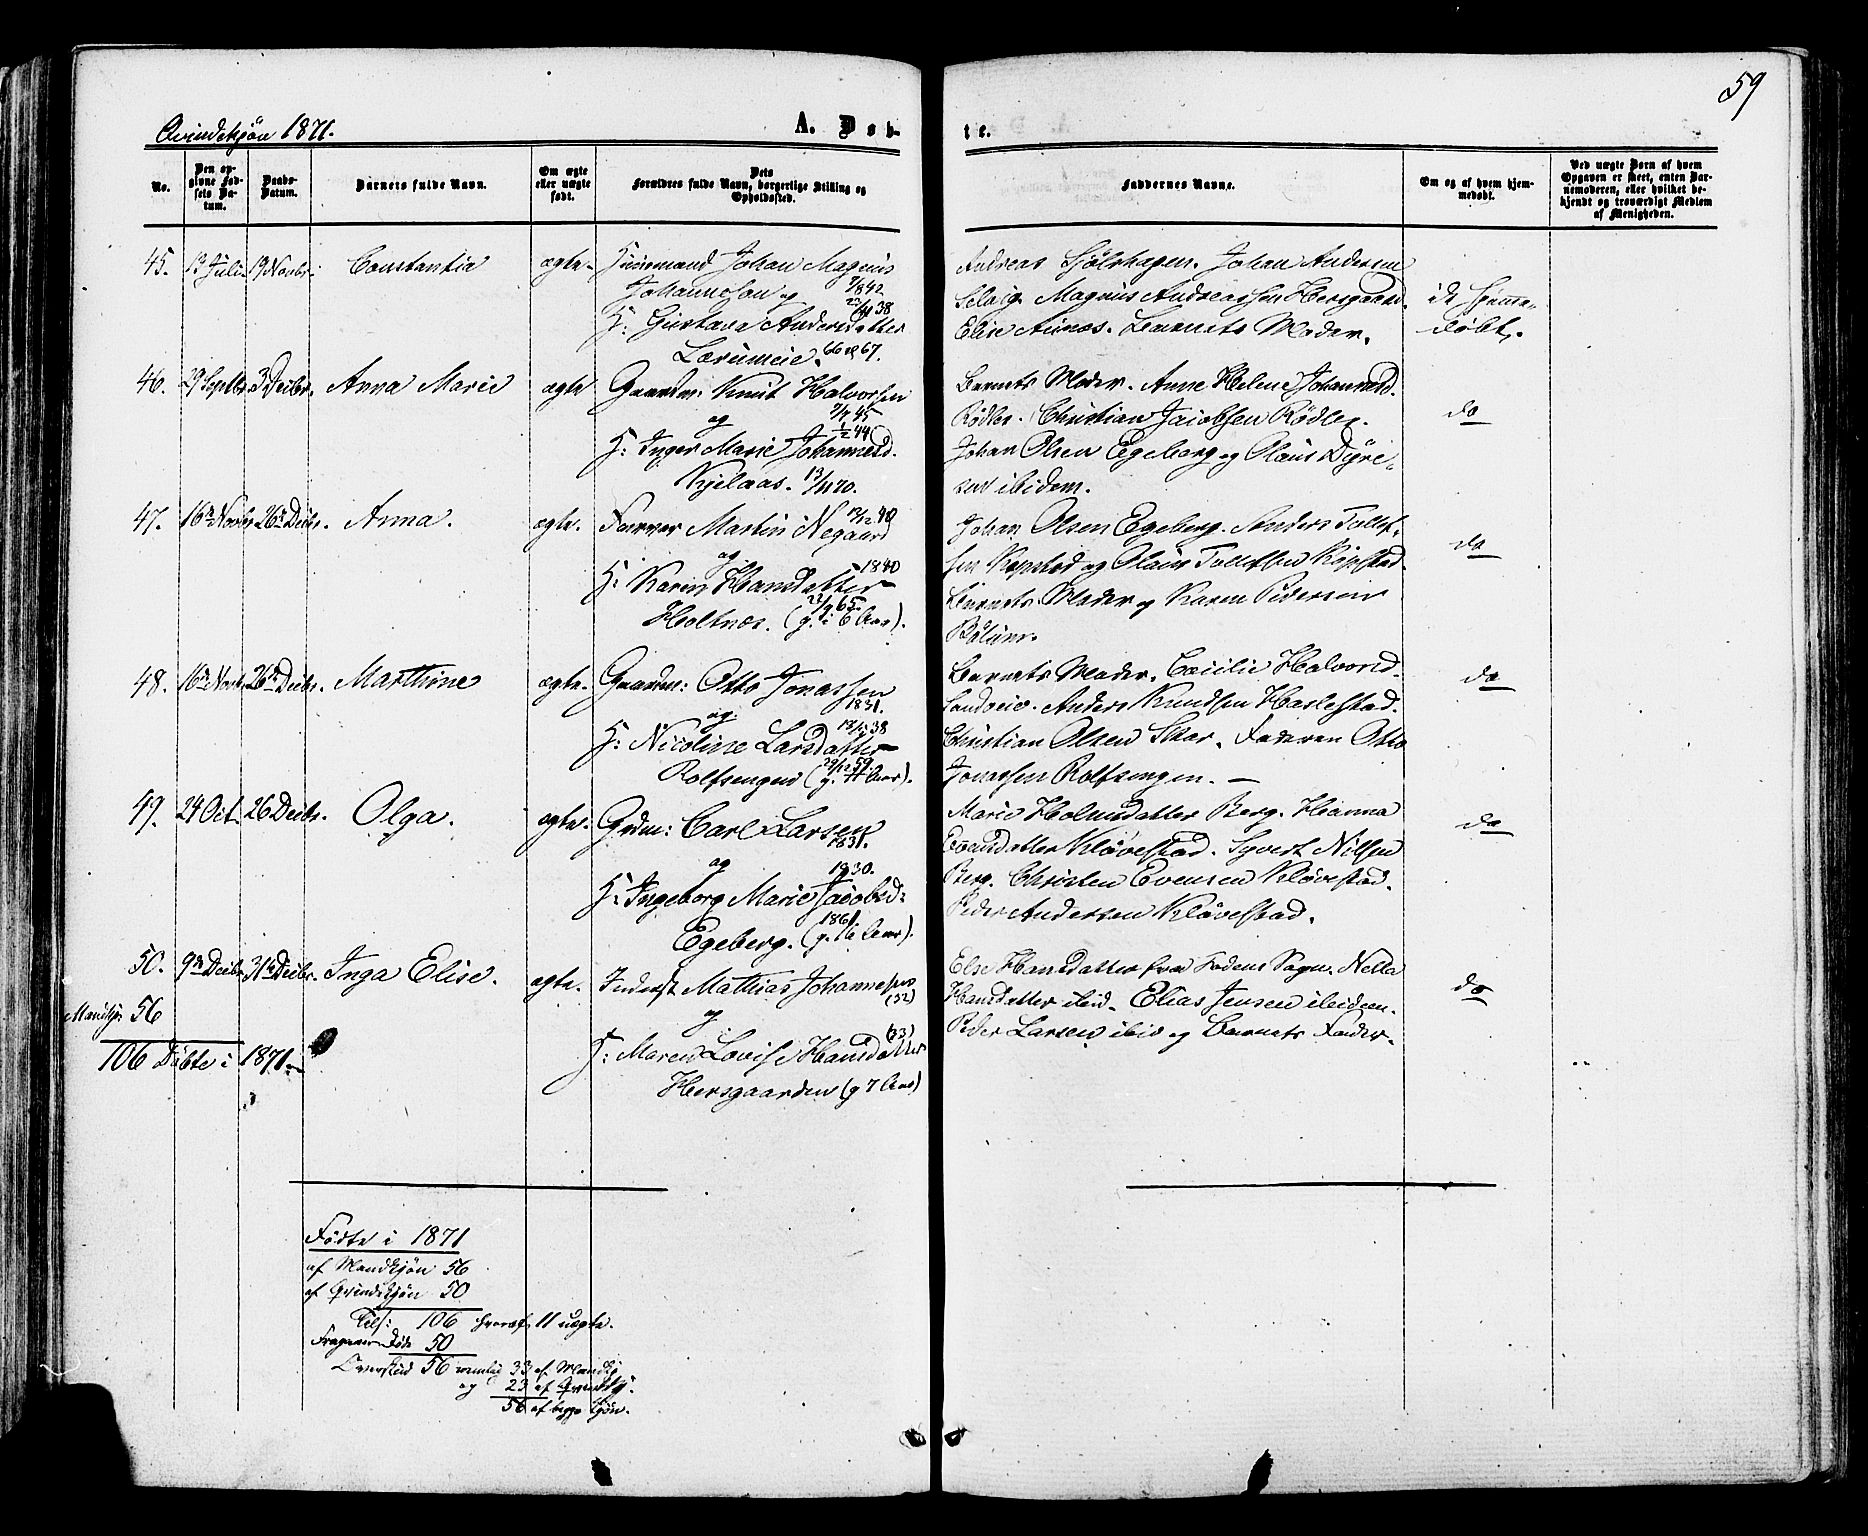 59
Qvindekjøn 1871.
A. Døb-
te.
No.
Den op-
givne Fød-
sels Da-
tum.
Daabs-
Datum.
Barnets fulde Navn.
Om ægte
eller uægte
født.
Dets
Forældres fulde Navn, borgerlige Stilling og
Opholdssted.
Faddernes Navne.
Om og af hvem hjem-
medøbt.
Ved uægte Børn af hvem
Opgaven er skeet, enten Bar-
nemoderen, eller hvilket be-
kjendt og troværdigt Medlem
af Menigheden.
45. 13 Juli 19 Novbr. Constantia ægte. Huusmand Johan Magnus
Johannesen og 42
H: Gustava Andersdatter 38
66 67.
Andreas Sjölshagen. Johan Andersen
Selvig. Magnus Andreassen Hersgaard.
Elise Aunas. Barnets Moder.
døbt.
46. 29 Septbr 3 Decbr. Anna Marie ægte Gaardm: Knut Halvorsen
og 45
H: Inger Marie Johannesd. 44
Kjelaas.
Barnets Moder. Anne Helene Johannesd.
Rødler. Christian Jacobsen Rødler.
Johan Olsen Egeberg og Olaus Dyre-
sen ibidem.
do
47. 16de Novbr 26de Decbr. Anna. ægte. Farver Martin Negaard
og 1840
H: Karen Hansdatter
Holtnes. (g. i 6 Aar).
Johan Olsen Egeberg. Anders Tollef-
sen Kopstad og Olaus Tollefsen Kopstad
Barnets Moder og Karen Pedersen
do
48. 16de Novbr 26de Decbr. Marthine ægte. Gaardm: Otto Jonassen
og 1831.
H: Nicoline Larsdatter 38
Rolfsengen (g. Aar).
Barnets Moder. Cæcilie Halvorsd.
Sandveie. Anders Knudsen Haslestad.
Christian Olsen Skar. Faderen Otto
Jonassen Rolfsengen.
do
49. 24 Oct. 26 Decbr. Olga. ægte. Grdm: Carl Larsen
1831.
og 1830.
H: Ingeborg Marie Jacobsd:
Egeberg. (g. Aar).
Marie Holmsdatter Berg. Hanna
Evensdatter Kløvestad. Syvert Nilsen
Berg. Christen Evensen Kløvestad.
Peder Andersen Kløvestad.
do
50. 9de Decbr 31te Decbr. Inga Elise. ægte. Inderst Mathias Johannesen
(32)
og (33)
H: Maren Lovise Hansdatter
Hersgaarden (g 7 Aar)
Else Hansdatter fra Fodens Sogn. Nella
Hansdatter ibid. Elias Jensen ibidem.
Peder Larsen ibid og Barnets Fader.
do
Mandkj: 56
106 Døbte i 1871.
Fødte i 1871
af Mandkjøn 56
af Qvindekjøn 50
Tils: 106 hvoraf 11 uægte.
Fragaaer Døde 50
Overskud 56 nemlig 33 af Mandkj
og 23 af Qvindekj.
56 af begge Kjøn.